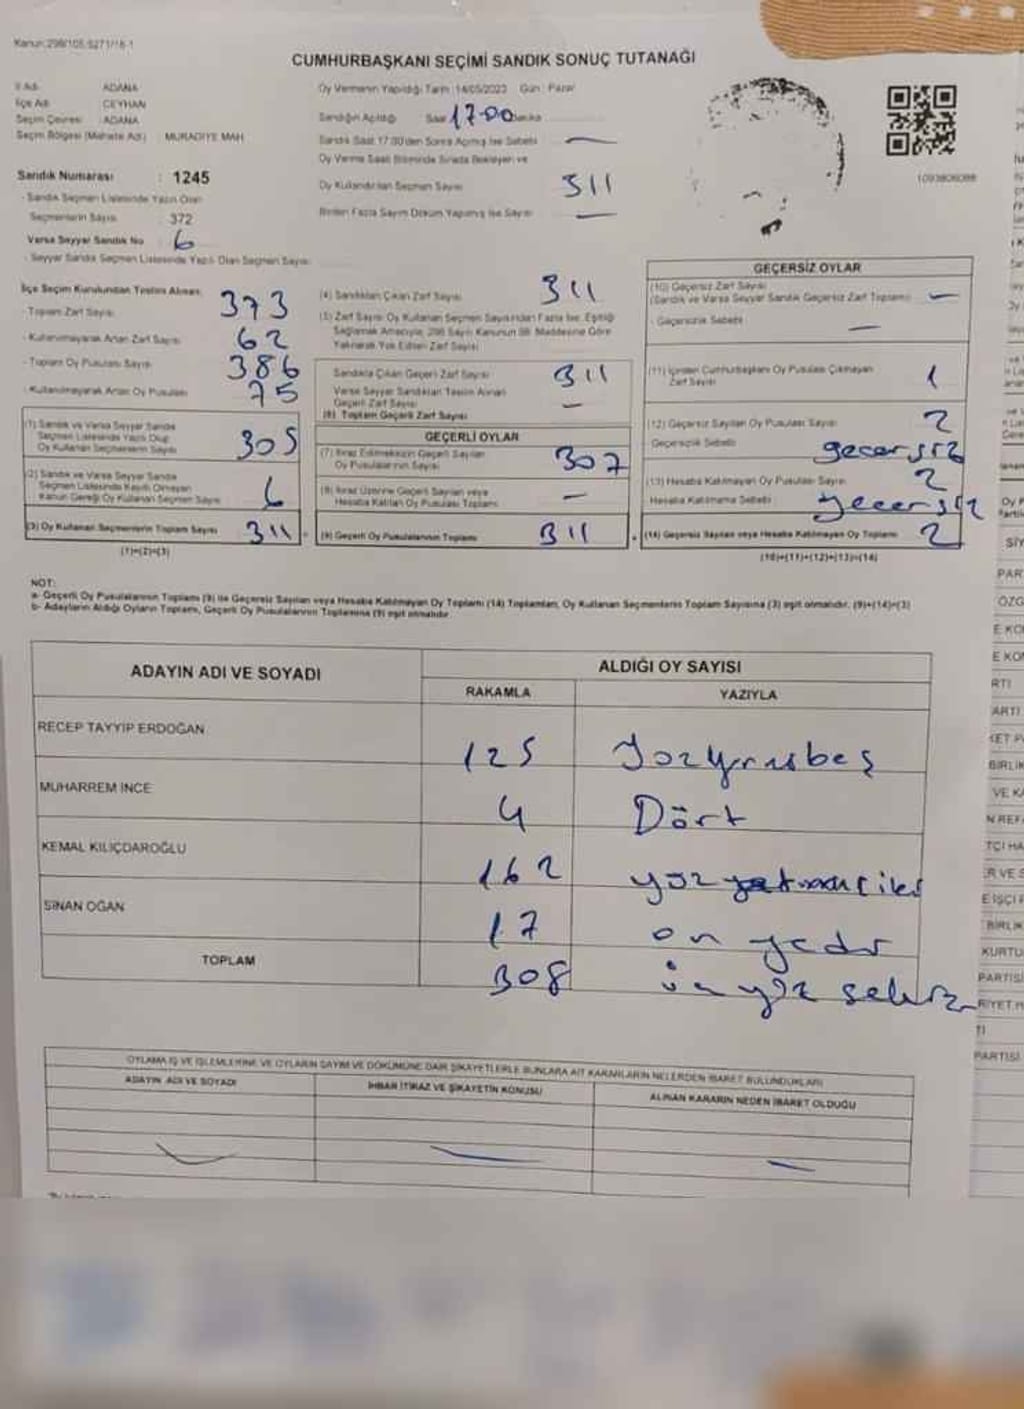 Kanun: 298/105, 5271/16-1
CUMHURBAŞKANI SEÇİMİ SANDIK SONUÇ TUTANAĞI
İl Adı : ADANA
İlçe Adı : CEYHAN
Seçim Çevresi : ADANA
Seçim Bölgesi (Mahalle Adı) : MURADİYE MAH
Sandık Numarası : 1245
- Sandık Seçmen Listesinde Yazılı Olan
Seçmenlerin Sayısı : 372
Varsa Seyyar Sandık No : 6
- Seyyar Sandık Seçmen Listesinde Yazılı Olan Seçmen Sayısı
Oy Vermenin Yapıldığı Tarih : 14/05/2023 Gün : Pazar
Sandığın Açıldığı Saat 17.00 Dakika
Sandık Saat 17:00'den Sonra Açılmış İse Sebebi —
Oy Verme Saati Bitiminde Sırada Bekleyen ve
Oy Kullandırılan Seçmen Sayısı 311
Birden Fazla Sayım Döküm Yapılmış İse Sayısı —
1093806088
İlçe Seçim Kurulundan Teslim Alınan;
Toplam Zarf Sayısı 373
- Kullanılmayarak Artan Zarf Sayısı 62
- Toplam Oy Pusulası Sayısı 386
- Kullanılmayarak Artan Oy Pusulası 75
(1) Sandık ve Varsa Seyyar Sandık
Seçmen Listesinde Yazılı Olup
Oy Kullanan Seçmenlerin Sayısı 305
(2) Sandık ve Varsa Seyyar Sandık
Seçmen Listesinde Kayıtlı Olmayan
Kanun Gereği Oy Kullanan Seçmen Sayısı 6
(3) Oy Kullanan Seçmenlerin Toplam Sayısı 311
(1)+(2)=(3)
(4) Sandıktan Çıkan Zarf Sayısı 311
(5) Zarf Sayısı Oy Kullanan Seçmen Sayısından Fazla İse, Eşitliği
Sağlamak Amacıyla, 298 Sayılı Kanunun 98. Maddesine Göre
Yakılarak Yok Edilen Zarf Sayısı
Sandıkta Çıkan Geçerli Zarf Sayısı 311
Varsa Seyyar Sandıktan Teslim Alınan
Geçerli Zarf Sayısı —
(6) Toplam Geçerli Zarf Sayısı
GEÇERLİ OYLAR
(7) İtiraz Edilmeksizin Geçerli Sayılan
Oy Pusulalarının Sayısı 307
(8) İtiraz Üzerine Geçerli Sayılan veya
Hesaba Katılan Oy Pusulası Toplamı —
(9) Geçerli Oy Pusulalarının Toplamı 311
GEÇERSİZ OYLAR
(10) Geçersiz Zarf Sayısı
(Sandık ve Varsa Seyyar Sandık Geçersiz Zarf Toplamı) —
- Geçersizlik Sebebi —
(11) İçinden Cumhurbaşkanı Oy Pusulası Çıkmayan
Zarf Sayısı 1
(12) Geçersiz Sayılan Oy Pusulası Sayısı 2
Geçersizlik Sebebi gecersiz
(13) Hesaba Katılmayan Oy Pusulası Sayısı 2
Hesaba Katılmama Sebebi gecersiz
(14) Geçersiz Sayılan veya Hesaba Katılmayan Oy Toplamı 2
(10)+(11)+(12)+(13)=(14)
NOT:
a- Geçerli Oy Pusulalarının Toplamı (9) ile Geçersiz Sayılan veya Hesaba Katılmayan Oy Toplamı (14) Toplamları, Oy Kullanan Seçmenlerin Toplam Sayısına (3) eşit olmalıdır. (9)+(14)=(3)
b- Adayların Aldığı Oyların Toplamı, Geçerli Oy Pusulalarının Toplamına (9) eşit olmalıdır.
ADAYIN ADI VE SOYADI ALDIĞI OY SAYISI
RAKAMLA YAZIYLA
RECEP TAYYİP ERDOĞAN 125 yüzyirmibeş
MUHARREM İNCE 4 Dört
KEMAL KILIÇDAROĞLU 162
SİNAN OĞAN 17 on yedi
TOPLAM 308 üç yüz sekiz
OYLAMA İŞ VE İŞLEMLERİNE VE OYLARIN SAYIM VE DÖKÜMÜNE DAİR ŞİKAYETLERLE BUNLARA AİT KARARLARIN NELERDEN İBARET BULUNDUKLARI
ADAYIN ADI VE SOYADI İHBAR İTİRAZ VE ŞİKAYETİN KONUSU ALINAN KARARIN NEDEN İBARET OLDUĞU